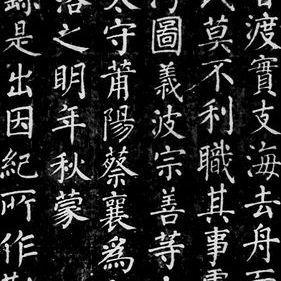 渡實支海去舟而
民莫不利職其事
圖義波宗善等
太守莆陽蔡襄爲
落之明年秋蒙
是出因紀所作勒